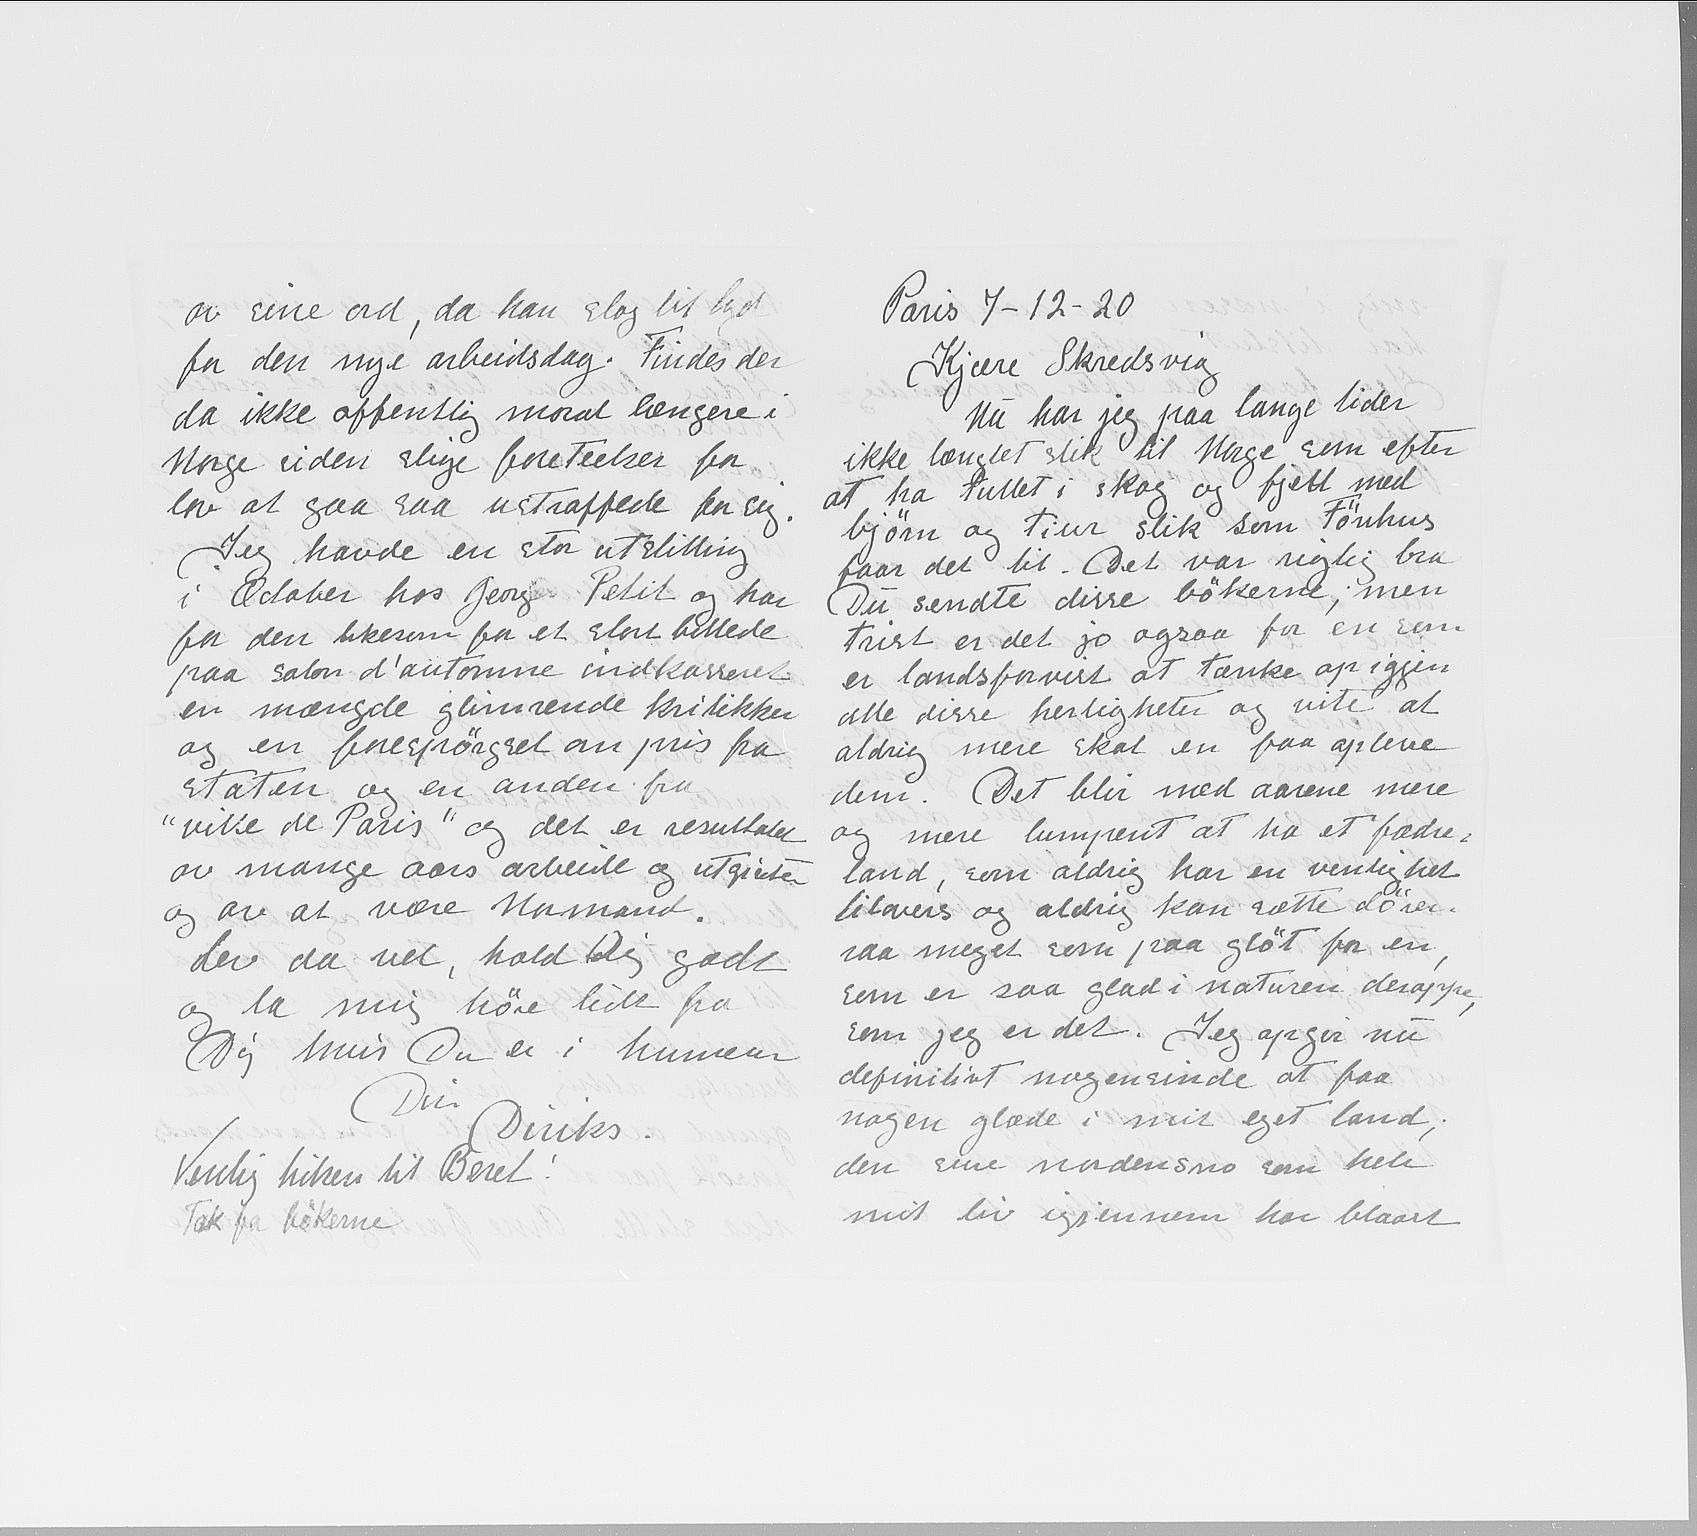 Paris 7-12-20
Kjære Skredsvig
Nu har jeg paa lange tider
ikke længtet slik til Norge som efter
at ha tullet i skog og fjell med
bjørn og tiur slik som Fönhus
faar det til. Det var rigtig bra
Du sendte disse bökerne, men
trist er det jo ogsaa for en som
er landsforvist at tænke op igjen
alle disse herligheter og vite at
aldrig mere skal en faa opleve
dem. Det blir med aarene mere
og mere lumpent at ha et fædre-
land, som aldrig har en venlighet
tilovers og aldrig kan sætte dören
saa meget som paa glöt for en,
som er saa glad i naturen deroppe,
som jeg er det. Jeg opgir nu
definitivt nogensinde at faa
nogen glæde i mit eget land,
den sure nordensno som hele
mit liv igjennem har blaast
av sine ord, da han slog til lyd
for den nye arbeidsdag. Findes der
da ikke offentlig moral længere i
Norge siden slige foreteelser faar
lov at gaa saa ustraffede for sig.
Jeg havde en stor utstilling
i October hos Georg Petit og har
for den likesom for et stort billede
paa salon d'automne indkasseret
en mængde glimrende kritikker
og en forespörgsel om pris fra
staten og en anden fra
"ville de Paris" og det er resultatet
av mange aars arbeide og utgifter
og av at være Normand.
Lev da vel, hold Dig godt
og la mig höre lidt fra
Dig hvis Du er i humeur
Din
Diriks.
Venlig hilsen til Beret!
Tak for bökerne